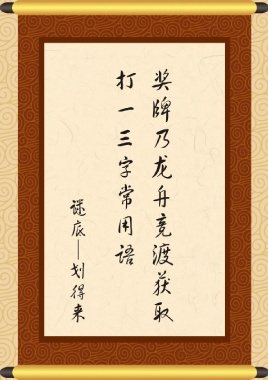 奖牌乃龙舟竞渡获取
打一三字常用语
谜底—划得来